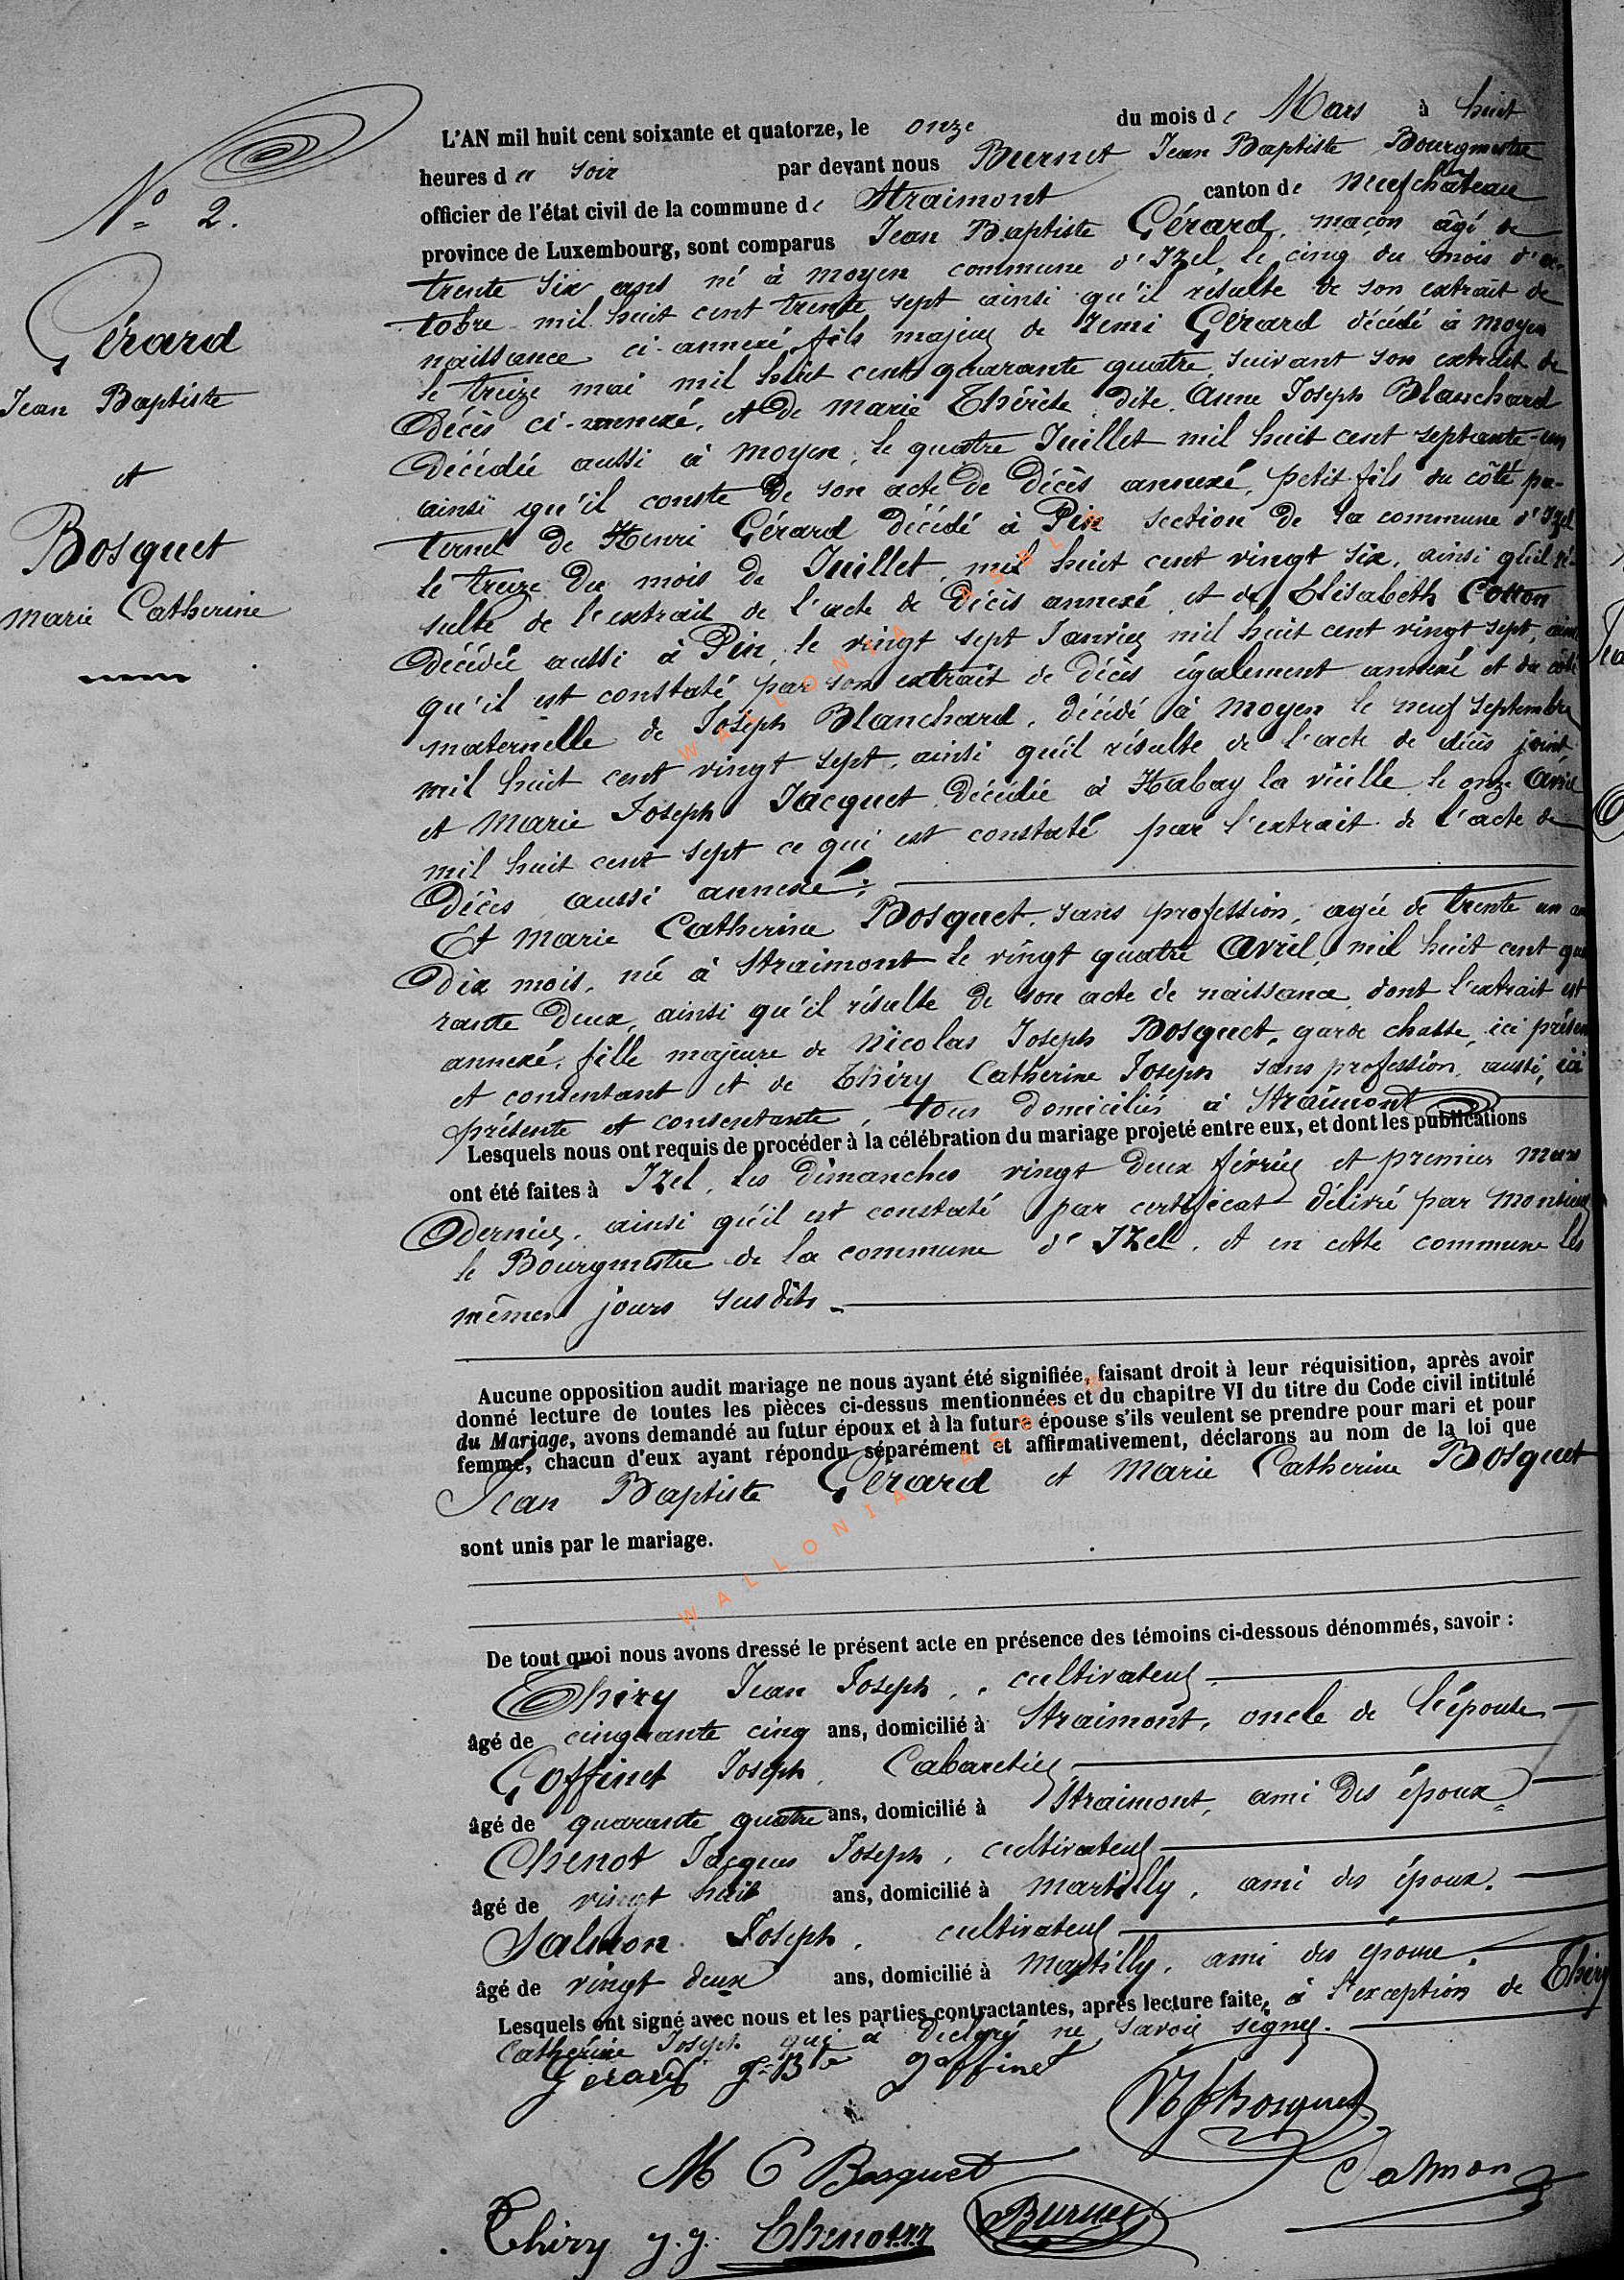 N° 2.
Gérard
Jean Baptiste
et
Bosquet
Marie Catherine
L'AN mil huit cent soixante et quatorze, le onze du mois de Mars à huit
heures du soir par devant nous Burnet Jean Baptiste Bourgmestre
officier de l'état civil de la commune de Straimont canton de Neufchâteau
province de Luxembourg, sont comparus Jean Baptiste Gérard, maçon âgé de
trente six ans né à Moyen commune d'Izel, le cinq du mois d'oc-
tobre mil huit cent trente sept ainsi qu'il résulte de son extrait de
naissance ci-annexé, fils majeur de Remi Gérard décédé à Moyen
le treize mai mil huit cent quarante quatre, suivant son extrait de
décès ci-annexé, et de Marie Thérèse dite Anne Joseph Blanchard
décédée aussi à Moyen, le quatre Juillet mil huit cent septante-un
ainsi qu'il conste de son acte de décès annexé, petit-fils du côté pa-
ternel de Henri Gérard décédé à Pin section de la commune d'Izel
le treize du mois de Juillet, mil huit cent vingt six, ainsi qu'il ré-
sulte de l'extrait de l'acte de décès annexé, et de Elisabeth Cotton
décédée aussi à Pin, le vingt sept Janvier mil huit cent vingt sept, ainsi
qu'il est constaté par son extrait de décès également annexé et du côté
maternelle de Joseph Blanchard, décédé à Moyen le neuf septembre
mil huit cent vingt sept, ainsi qu'il résulte de l'acte de décès joint
et Marie Joseph Jacquet décédée à Habay la vieille le onze avril
mil huit cent sept ce qui est constaté par l'extrait de l'acte de
décès aussi annexé;
Et Marie Catherine Bosquet, sans profession, agée de trente un ans
dix mois, née à Straimont le vingt quatre avril, mil huit cent qua
rante deux, ainsi qu'il résulte de son acte de naissance dont l'extrait est
annexé, fille majeure de Nicolas Joseph Bosquet, garde chasse, ici présent
et consentant et de Thiry Catherine Joseph sans profession, aussi, ici
présente et consentante, tous domiciliés à Straimont
Lesquels nous ont requis de procéder à la célébration du mariage projeté entre eux, et dont les publications
ont été faites à Izel, les dimanches vingt deux février et premier Mars
dernier, ainsi qu'il est constaté par certificat délivré par Monsieur
le Bourgmestre de la commune d'Izel, et en cette commune les
mêmes jours susdits.
Aucune opposition audit mariage ne nous ayant été signifiée, faisant droit à leur réquisition, après avoir
donné lecture de toutes les pièces ci-dessus mentionnées et du chapitre VI du titre du Code civil intitulé
du Mariage, avons demandé au futur époux et à la future épouse s'ils veulent se prendre pour mari et pour
femme, chacun d'eux ayant répondu séparément et affirmativement, déclarons au nom de la loi que
Jean Baptiste Gérard et Marie Catherine Bosquet
sont unis par le mariage.
De tout quoi nous avons dressé le présent acte en présence des témoins ci-dessous dénommés, savoir :
Thiry Jean Joseph, cultivateur
âgé de cinquante cinq ans, domicilié à Straimont, oncle de l'épouse
Goffinet Joseph, Cabaretier
âgé de quarante quatre ans, domicilié à Straimont, ami des époux
Chenot Jacques Joseph, cultivateur
âgé de vingt huit ans, domicilié à Martilly, ami des époux.
Salmon Joseph, cultivateur
âgé de vingt deux ans, domicilié à Martilly, ami des époux.
Lesquels ont signé avec nous et les parties contractantes, après lecture faite, à l'exception de Thiry
Catherine Joseph qui a déclaré ne savoir signer.
Gerard J-Bte Goffinet
NJ Bosquet
M C Bosquet
Salmon
Thiry J. J. Chenot J.J Burnet
WALLONIA ASBL
WALLONIA ASBL